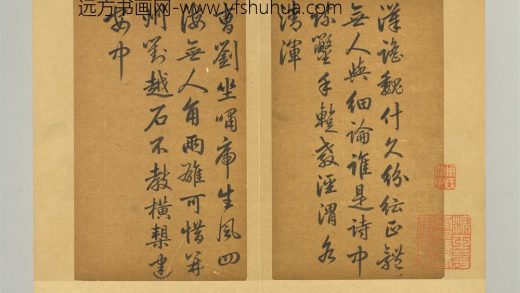 远方书画网-www.yfshuhua.com
漢謠魏什久紛紜正體
無人與細論誰是詩中
疏鑿手暫教涇渭各
清渾
曹劉坐嘯虎生風四
海無人角兩雄可惜并
州劉越石不教横槊建
安中